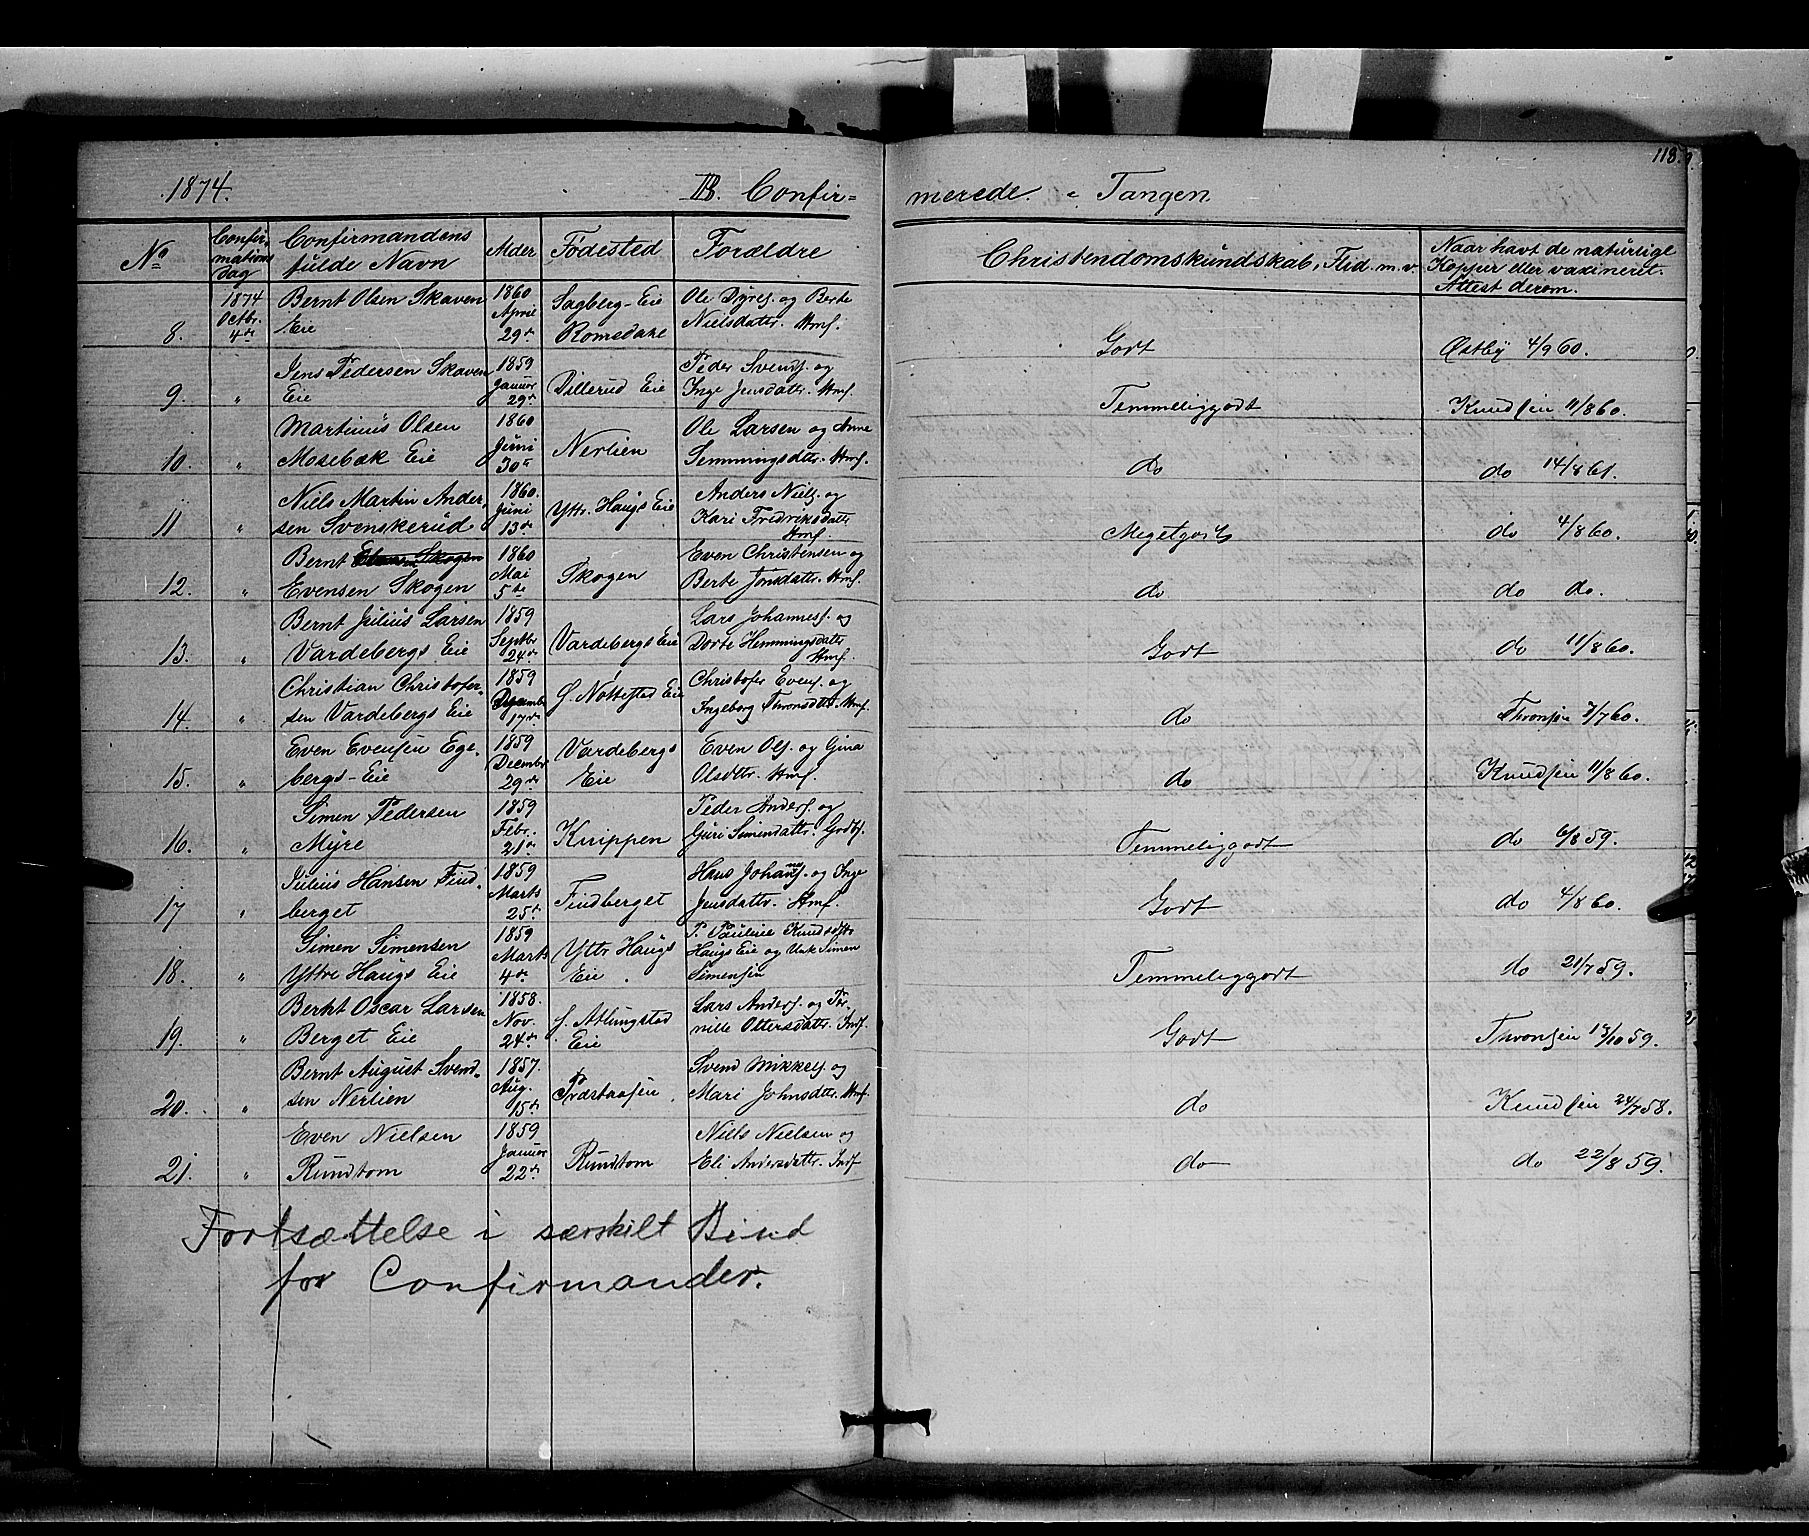 118.
1874. IIB. Confir= merede. i Tangen.
No Confir, mations dag Confirmandens fulde Navn Alder Fødested Forældre Christendomskundskab, Flid m. v. Naar havt de naturlige Kopper eller vaxineret. Attest derom.
8. 1874 Octbr. 4de Bernt Olsen Skaven Eie 1860 April 29de Sagberg-Eie Romsdale Ole Dyres. og Berte Nielsdattr. Hmf. Godt Østby 4/9 60.
9. " Jens Pedersen Skaven Eie 1859 Januar 29de Dillerud Eie Peder Svends. og Inge Jensdattr. Hmf. Temmeliggodt Knudsen 11/8 60.
10. " Martinus Olsen Mosebæk Eie 1860 Juni 30te Nerlien Ole Larsen og Anne Semmingsdttr. Hmf. do do 14/8 61.
11 " Niels Martin Ander, sen Svenskerud 1860. Juni 13de Yttr. Haugs Eie Anders Niels. og Kari Fredriksdattr Hmf. Megetgodt do 4/8 60.
12. " Bernt Evensen Skogen 1860 Mai 5te Skogen Even Christensen og Berte Jonsdattr. Hmf. do do do.
13. " Bernt Julius Larsen Vardebergs Eie 1859 Septbr 24de Vardebergs Eie Lars Johannes. og Dorte Hemmingsdattr Hmf. Godt do 11/8 60.
14. " Christian Christofer- sen Vardebergs Eie 1859 Decembr 17de S. Nøttestad Eie Christofer Evens. og Ingeborg Thronsdttr. Hmf. do Thronsen 7/7 60.
15. " Even Evensen Ege- bergs-Eie 1859 Decembr 29de Vardebergs Eie Even Ols. og Gina Olsdttr. Hmf. do Knudsen 11/8 60.
16. " Simen Pedersen Myre 1859 Febr. 21de Knippen Peder Anders. og Guri Simendattr. Godtf. Temmeliggodt do 6/8 59.
17 " Julius Hansen Find- berget 1859 Marts 25de Findberget Hans Johannes. og Inge Jensdattr. Hmf. Godt do 4/8 60.
18. " Simen Simensen Yttre Haugs Eie 1859 Marts 4de Yttr Haugs Eie P. Pauline Knudsdttr Haugs Eie og Unk Simen Simensen Temmeliggodt do 21/7 59.
19. " Bernt Oscar Larsen Berget Eie 1858. Nov. 24de S. Atlungstad Eie Lars Anders. og Per- nille Ottersdattr. Indf. Godt Thronsen 18/10 59.
20. " Bernt August Svend- sen Nerlien 1857. Aug. 15de Præstaasen Svend Mikkels. og Mari Johnsdttr. Hmf. do Knudsen 24/7 58.
21. " Even Nielsen Rundtom 1859 Januar 22de Rundtom Niels Nielsen og Eli Andersdattr. Indf do do 22/8 59.
Fortsættelse i særskilt Bind
for Confirmander.